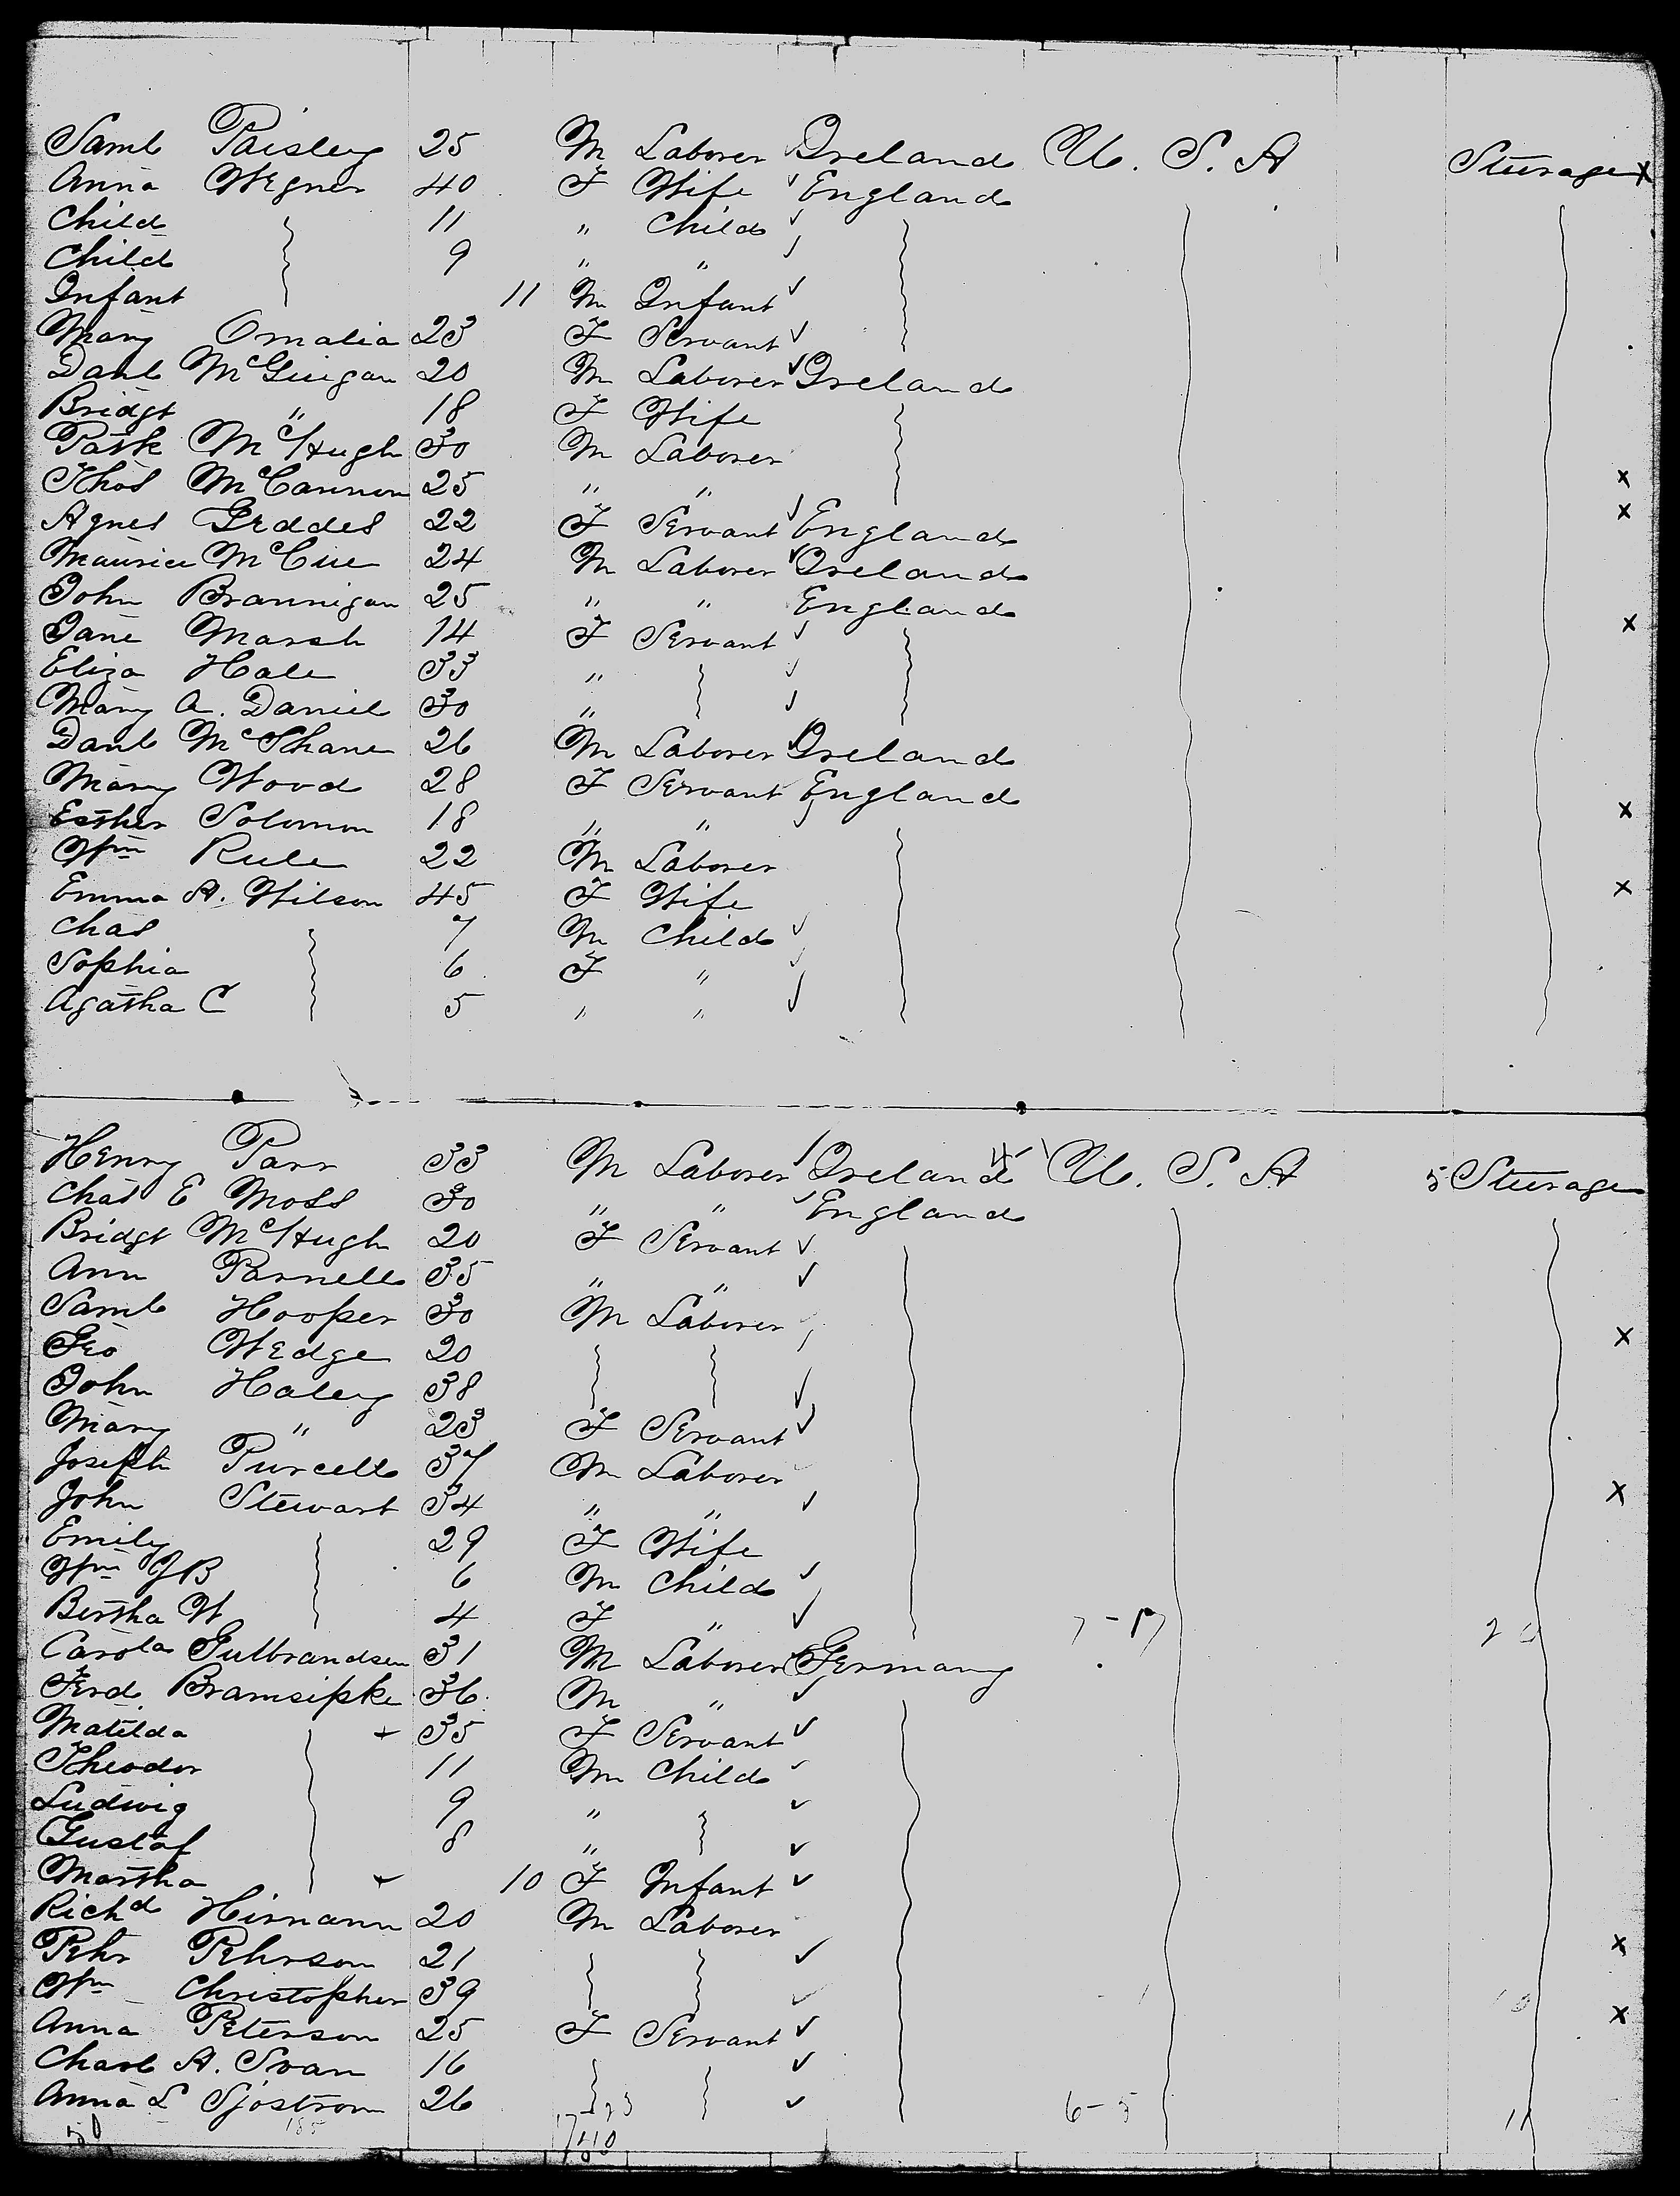 Saml Paisley 25 M Laborer Ireland U. S. A Steerage X
Anna Wegner 40 F Wife England
Child 11 " Child
Child 9 " "
Infant 11 M Infant
Mary Omalia 23 F Servant
Danl McGuigan 20 M Laborer Ireland
Bridgt " 18 F Wife
Patk McHugh 30 M Laborer
Thos McCannon 25 " " x
Agnes Geddes 22 F Servant England x
Maurice McCue 24 M Laborer Ireland
John Brannigan 25 " " England
Jane Marsh 14 F Servant x
Eliza Hale 33 "
Mary A. Daniel 30 "
Danl McShane 26 M Laborer Ireland
Mary Wood 28 F Servant England
Esther Solomon 18 " " x
Wm Rule 22 M Laborer
Emma A. Wilson 45 F Wife x
Chas 7 M Child
Sophia 6 F "
Agatha C 5 " "
Henry Parr 33 M Laborer Ireland U. S. A 5 Steerage
Chas E Moss 30 " " England
Bridgt McHugh 20 F Servant
Ann Parnell 35 " "
Saml Hooper 30 M Laborer
Geo Wedge 20 x
John Haley 38
Mary " 23 F Servant
Joseph Purcell 37 M Laborer
John Stewart 34 " " x
Emily 29 F Wife
Wm JB 6 M Child
Bertha W 4 F "
Carola Gulbrandsen 31 M Laborer Germany
Ferd Bramsipke 36 M "
Matilda 35 F Servant
Theodor 11 M Child
Ludwig 9 "
Gustaf 8 "
Martha 10 F Infant
Richd Hirmann 20 M Laborer
Pehr Pehrson 21 x
Wm Christopher 39
Anna Peterson 25 F Servant x
Charl A. Svan 16
Anna L Sjostrom 26 6-5 11
50 185